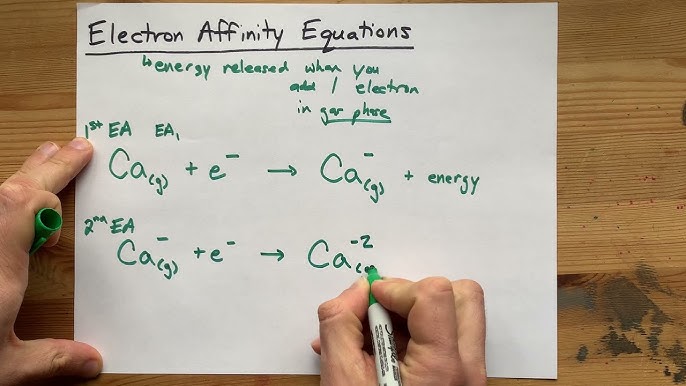 Electron Affinity Equations
↳ energy released when you
add 1 electron
in gas phase
1st EA EA₁
Ca(g) + e⁻ → Ca⁻(g) + energy
2nd EA
Ca⁻(g) + e⁻ → Ca⁻²(g
Sharpie